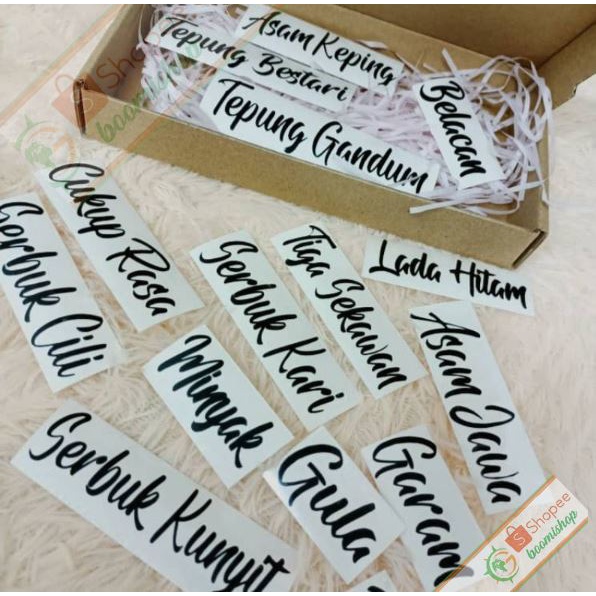 Shopee
boomishop
Asam Keping
Tepung Bestari
Tepung Gandum
Belacan
Cukup Rasa
Serbuk Cili
Serbuk Kari
Tiga Sekawan
Lada Hitam
Minyak
Asam Jawa
Serbuk Kunyit
Gula
Garam
Shopee
boomishop